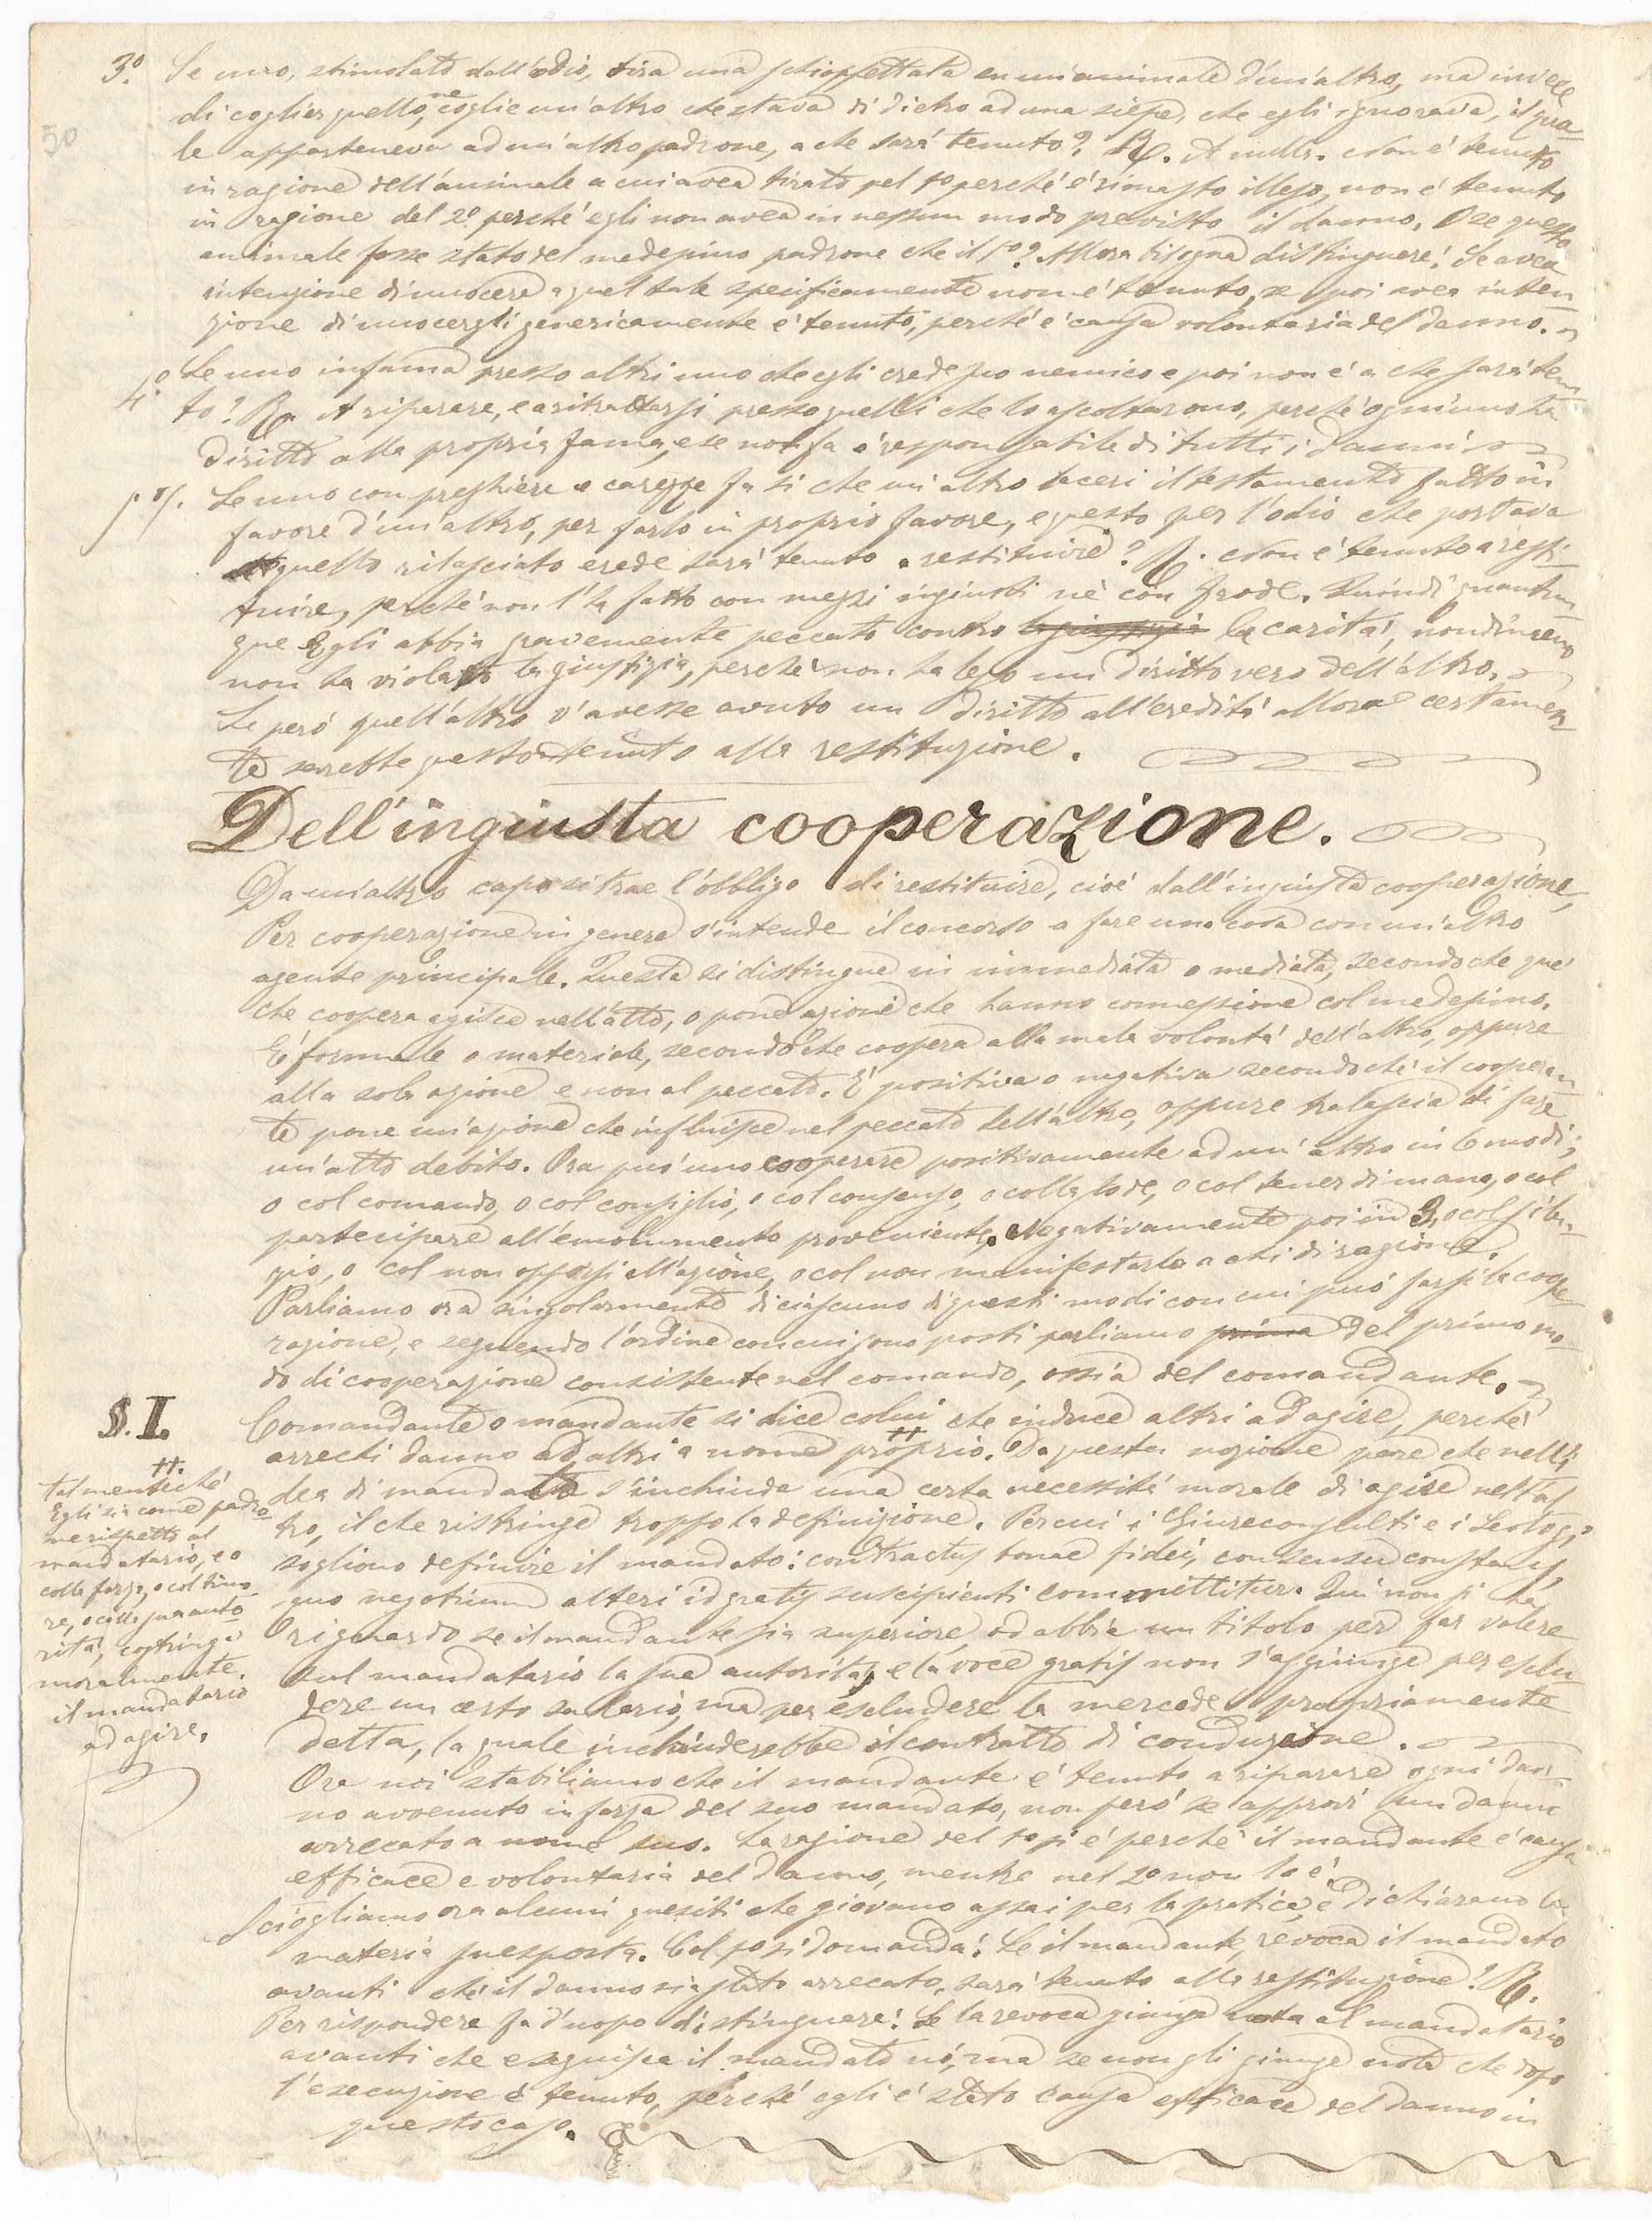 3.º Se uno, stimolato dall'odio, tira una schioppettata su un animale d'un altro, ma invece
50
di coglier quello, ne coglie un altro che stava di dietro ad una siepe, che egli ignorava, il qua-
le apparteneva ad un altro padrone, a che sará tenuto? R. A nulla. Non é tenuto
in ragione dell'animale a cui avea tirato pel 1º perché é rimasto illeso, non é tenuto
in ragione del 2º perché egli non avea in nessun modo previsto il danno. O se questo
animale fosse stato del medesimo padrone che il 1º? Allora bisogna distinguere: Se avea
intenzione di nuocere a quel tale specificamente non é tenuto, se poi avea inten
zione di nuocergli genericamente é tenuto, perché é causa volontaria del danno.
4.º Se uno infama presso altri uno che egli crede suo nemico e poi non é a che sará tenu
to? R. A riparare, e a ritrattarsi presso quelli che lo ascoltarono, perché ognuno ha
diritto alla propria fama, e se non fa é responsabile di tutti i danni
5º. Se uno con preghiere e carezze fa sì che un altro laceri il testamento fatto in
favore d'un altro, per farlo in proprio favore, e questo per l'odio che portava
a quello rilasciato erede sará tenuto a restituire? R. Non é tenuto a resti-
tuire, perché non l'ha fatto con mezzi ingiusti né con frode. Quindi quantun
que Egli abbia gravemente peccato contro la giustizia la caritá, nondimeno
non ha violato la giustizia, perché non ha leso un diritto vero dell'altro.
Se peró quell'altro v'avesse avuto un diritto all'ereditá allora certamen-
te sarebbe questo tenuto alla restituzione.
Dell'ingiusta cooperazione.
Da un altro capo si trae l'obbligo di restituire, cioé dall'ingiusta cooperazione.
Per cooperazione in genere s'intende il concorso a fare una cosa con un altro
agente principale. Questa si distingue in immediata o mediata, secondo che que'
che coopera agisce nell'atto, o pone azione che hanno connessione col medesimo.
É formale o materiale, secondo che coopera alla mala volontá dell'altro, oppure
alla sola azione e non al peccato. É positiva o negativa secondoché il cooperan-
te pone un'azione che influisce nel peccato dell'altro, oppure tralascia di fare
un'atto debito. Ora puó uno cooperare positivamente ad un'altro in 6 modi;
o col comando, o col consiglio, o col consenso, o colla lode, o col tener di mano, o col
partecipare all'emolumento proveniente. Negativamente poi in 3, o col silen-
zio, o col non opporsi all'azione, o col non manifestarla a chi di ragione.
Parliamo ora singolarmente di ciascuno di questi modi con cui puó farsi la coope
razione, e seguendo l'ordine con cui sono posti parliamo prima del primo mo-
do di cooperazione consistente nel comando, ossia del comandante.
§. I. Comandante o mandante si dice colui che induce altri ad agire, perché
arrechi danno ad altri a nome proprio. ++ Da questa nozione pare che nell'i
dea di mandato s'inchiuda una certa necessitá morale di agire nell'al
tro, il che ristringe troppo la definizione. Per cui i Giureconsulti e i Teologi
sogliono definire il mandato: contractus bonae fidei, consensu constans,
quo negotium alteri id gratis suscipienti committitur. Qui non si ha
riguardo se il mandante sia superiore, od abbia un titolo per far valere
sul mandatario la sua autoritá, e la voce gratis non s'aggiunge per esclu-
dere un certo salario, ma per escludere la mercede propriamente
detta, la quale inchiuderebbe il contratto di conduzione.
++.
talmenteché
Egli sia come padro-
ne rispetto al
mandatario, e o
colla forza, o col timo-
re, o colla sua auto
ritá, costringe
moralmente
il mandatario
ad agire.
Ora noi stabiliamo che il mandante é tenuto a riparare ogni dan-
no avvenuto in forza del suo mandato, non peró se approvi un danno
arrecato a nome suo. La ragione del 1º si é perché il mandante é causa
efficace e volontaria del danno, mentre nel 2º non lo é.
Sciogliamo ora alcuni quesiti che giovano assai per la pratica, e dichiarano la
materia suesposta. Col 1º si domanda: Se il mandante revoca il mandato
avanti che il danno sia stato arrecato, sará tenuto alla restituzione? R.
Per rispondere fa d'uopo distinguere: Se la revoca giunge nota al mandatario
avanti che eseguisca il mandato nó, ma se non gli giunge nota che dopo
l'esecuzione é tenuto, perché egli é stato causa efficace del danno in
questo caso.